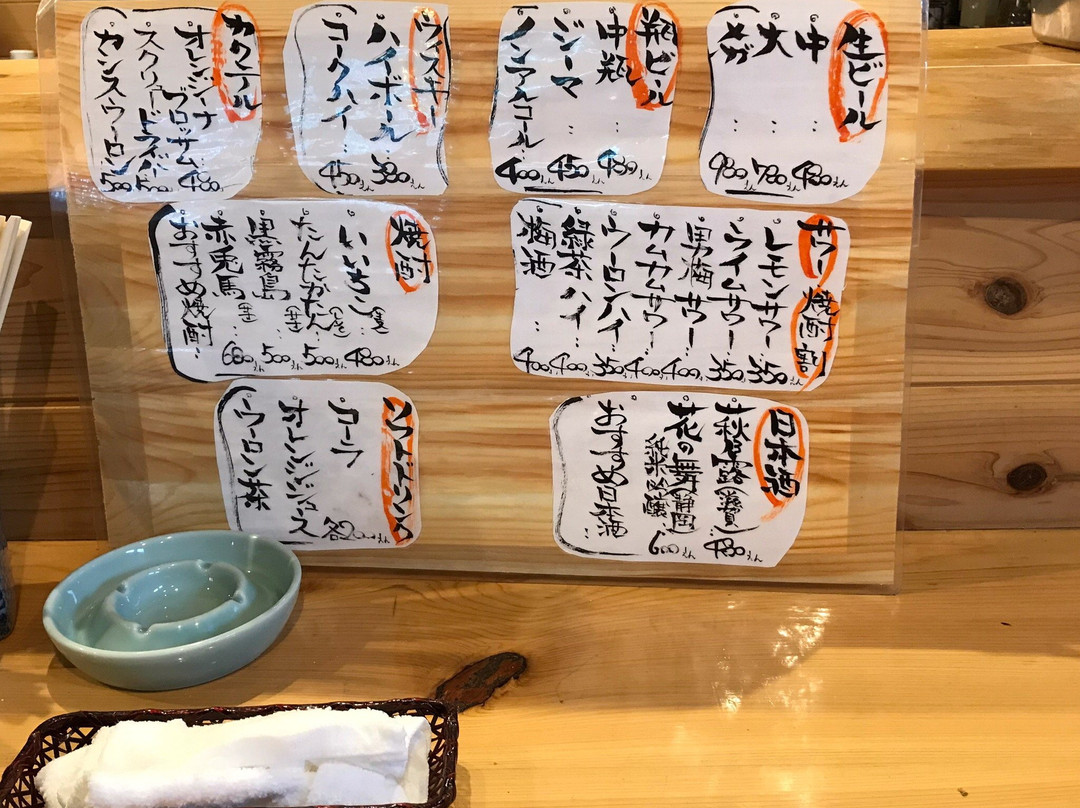 生ビール
中 : 480えん
大 : 780えん
メガ : 980えん
瓶ビール
中瓶 : 480えん
ジーマ : 450えん
ノンアルコール : 400えん
ウィスキー
ハイボール 380えん
コークハイ : 450えん
カクテル
オレンジーナ
ブロッサム : 480
スクリュードライバー 500
カシスウーロン 500
サワー 焼酎割
レモンサワー : 350えん
ライムサワー : 350えん
男梅サワー : 400
カムカムサワー 400
ウーロンハイ 350
緑茶ハイ : 400
梅酒 : 400
焼酎
いいちこ(麦) 480えん
たんたかたん(しそ) : 500えん
黒霧島(芋) : 500
赤兎馬(芋) : 600えん
おすすめ焼酎 :
日本酒
萩乃露(滋賀) 480えん
花の舞(静岡) 600えん
純米吟醸
おすすめ日本酒
ソフトドリンク
コーラ
オレンジジュース
ウーロン茶